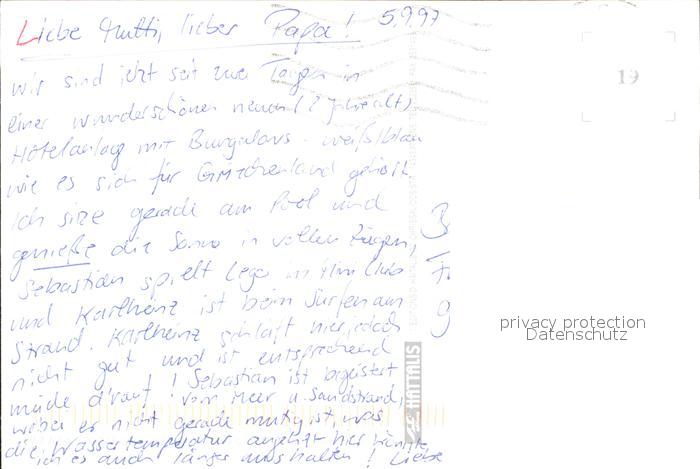 Liebe Mutti, lieber Papa! 5.9.97
wir sind jetzt seit zwei Tagen in
einer wunderschönen neuen (2 Jahre alt)
Hotelanlag mit Bungalows - weiß/blau
wie es sich für Griechenland gehört.
Ich sitze gerade am Pool und
genieße die Sonne in vollen Zügen,
Sebastian spielt Lego im Mini Club
und Karlheinz ist beim Surfen am
Strand. Karlheinz schläft hier jedoch
nicht gut und ist entsprechend
müde drauf! Sebastian ist begeistert
vom Meer u. Sandstrand,
wobei er nicht gerade mutig ist, was
die Wassertemperatur angeht hier könnte
ich es auch länger aushalten! Liebe
19
HATTALIS
privacy protection
Datenschutz